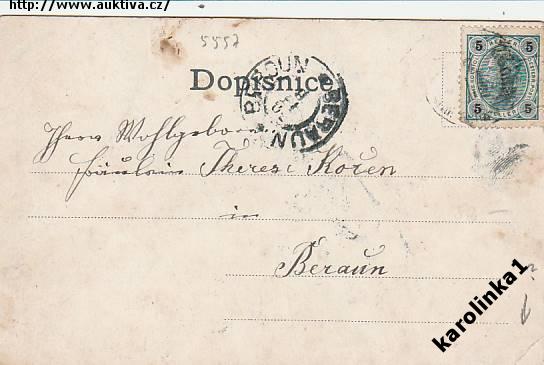 http://www.auktiva.cz/
5557
Dopisnice
BEROUN
BERAUN
5 5
5 5
Ihrer Wohlgeboren
Fräulein Therese Kořen
in
Beraun
karolinka1